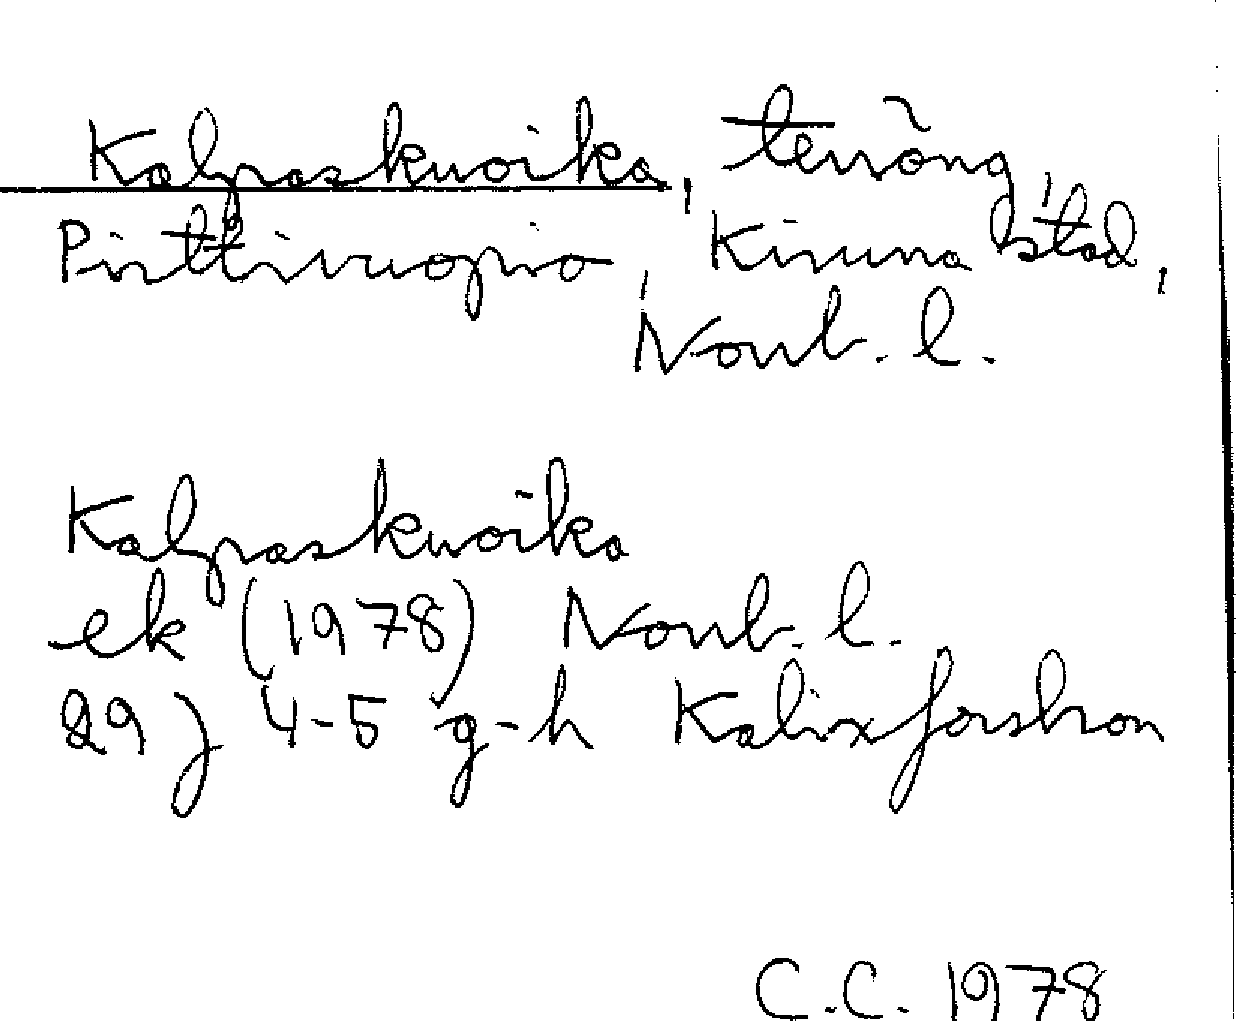 Kalpaskuoika, terräng,
Pirttivuopio, Kiruna stad,
Norrb. l.
Kalpaskuoika
ek (1978) Norrb. l.
29 J 4-5 g-h Kalixforsbron
C.C. 1978